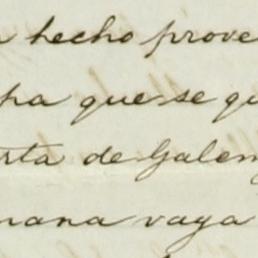 hecho prove
pa que se qu
rta de Galen
mana vaya